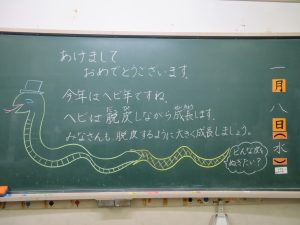 あけまして
おめでとうございます。
今年はヘビ年ですね。
ヘビは脱皮しながら成長します。
みなさんも脱皮するように大きく成長しましょう。
どんな皮を
ぬぎたい？
一月八日(水)